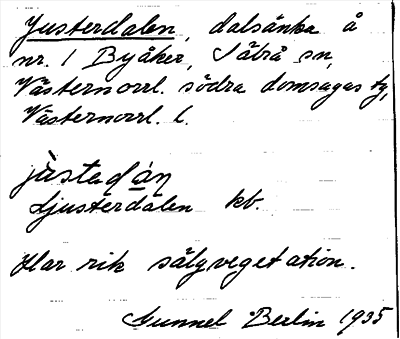 Ljusterdalen, dalsänka å
nr. 1 Byåker, Såbrå sn,
Västernorrl. södra domsagas tg,
Västernorrl. l.
jùstadáṇ
Ljusterdalen kb.
Har rik sälgvegetation.
Gunnel Berlin 1935